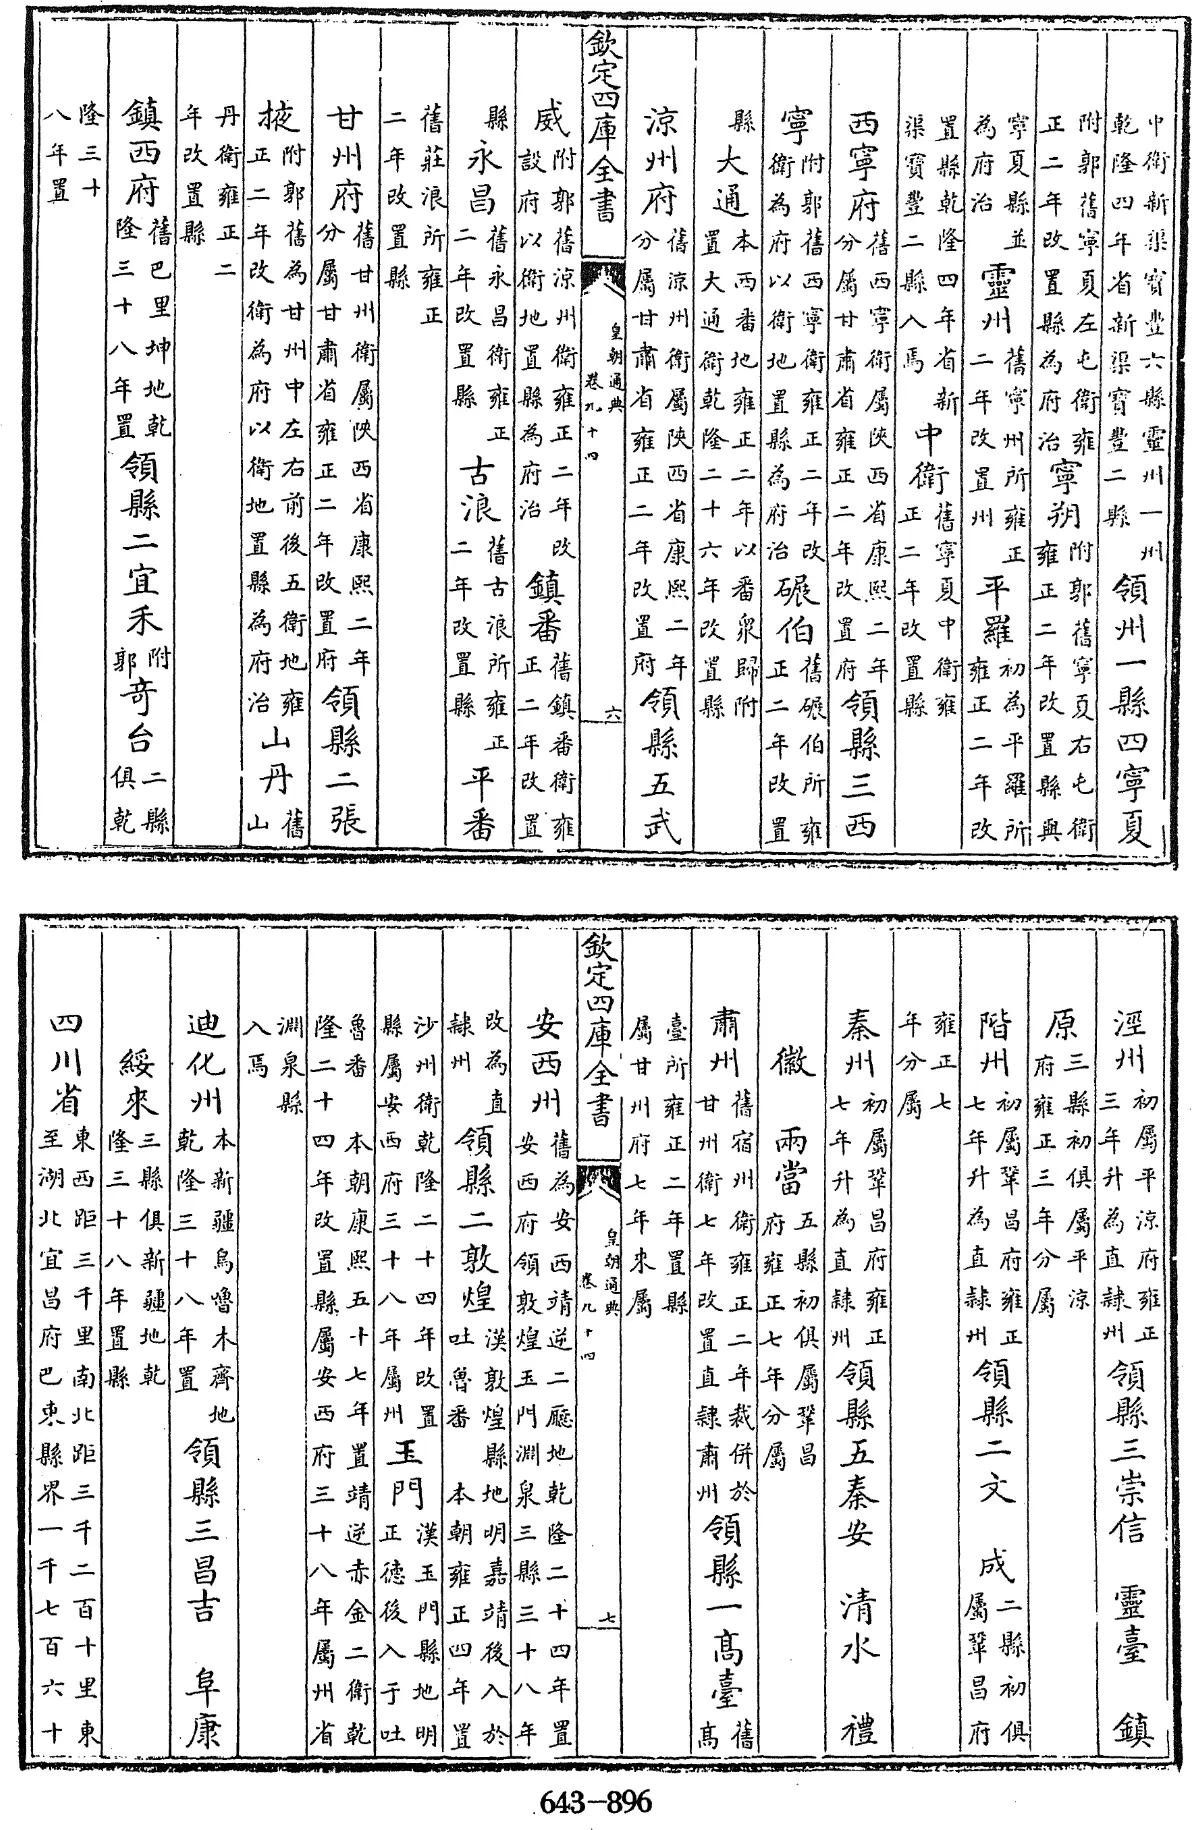 中衛新渠寳豐六縣靈州一州乾隆四年省新渠寳豐二縣領州一縣四寧夏
附郭舊寧夏左屯衛雍正二年改置縣為府治寧朔附郭舊寧夏右屯衛雍正二年改置縣與
寧夏縣並為府治靈州舊寧州所雍正二年改置州平羅初為平羅所雍正二年改
置縣乾隆四年省新渠寶豐二縣入焉中衛舊寧夏中衛雍正二年改置縣
西寧府舊西寧衛屬陜西省康熙二年分屬甘肅省雍正二年改置府領縣三西
寧附郭舊西寧衛雍正二年改衛為府以衛地置縣為府治碾伯舊碾伯所雍正二年改置
縣大通本西番地雍正二年以番衆歸附置大通衛乾隆二十六年改置縣
涼州府舊涼州衛屬陜西省康熙二年分屬甘肅省雍正二年改置府領縣五武
欽定四庫全書 皇朝通典卷九十四 六
威附郭舊涼州衛雍正二年改設府以衛地置縣為府治鎮番舊鎮番衛雍正二年改置
縣永昌舊永昌衛雍正二年改置縣古浪舊古浪所雍正二年改置縣平番
舊莊浪所雍正二年改置縣
甘州府舊甘州衛屬陜西省康熙二年分屬甘肅省雍正二年改置府領縣二張
掖附郭舊為甘州中左右前後五衛地雍正二年改衛為府以衛地置縣為府治山丹舊山
丹衛雍正二年改置縣
鎮西府舊巴里坤地乾隆三十八年置領縣二宜禾附郭奇台二縣俱乾
隆三十八年置
涇州初屬平涼府雍正三年升為直隸州領縣三崇信 靈臺 鎮
原三縣初俱屬平涼府雍正三年分屬
階州初屬鞏昌府雍正七年升為直隸州領縣二文 成二縣初俱屬鞏昌府
雍正七年分屬
秦州初屬鞏昌府雍正七年升為直隸州領縣五秦安 清水 禮
徽 兩當五縣初俱屬鞏昌府雍正七年分屬
肅州舊宿州衛雍正二年裁併於甘州衛七年改置直隸肅州領縣一高臺舊高
臺所雍正二年置縣屬甘州府七年來屬
欽定四庫全書 皇朝通典卷九十四 七
安西州舊為安西靖逆二廳地乾隆二十四年置安西府領敦煌玉門淵泉三縣三十八年
改為直隸州領縣二敦煌漢敦煌縣地明嘉靖後入於吐魯番 本朝雍正四年置
沙州衛乾隆二十四年改置縣屬安西府三十八年屬州玉門漢玉門縣地明正德後入于吐
魯番 本朝康熙五十七年置靖逆赤金二衛乾隆二十四年改置縣屬安西府三十八年屬州省
淵泉縣入焉
迪化州本新疆烏嚕木齊地乾隆三十八年置領縣三昌吉 阜康
綏來三縣俱新疆地乾隆三十八年置縣
四川省東西距三千里南北距三千二百十里東至湖北宜昌府巴東縣界一千七百六十
643-896